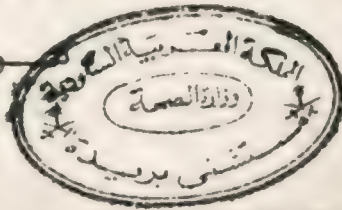 المملكة العربية السعودية
وزارة الصحة
مستشفى بريدة